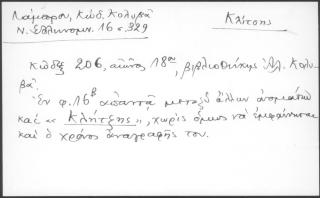 Λάμπρου, Κώδ. Κολυβᾶ Κλίτσης
Ν. Ἑλληνομν. 16 σ. 329
Κῶδιξ 206, αἰῶνος 18ου, βιβλιοθήκης Ἀλ. Κολυ-
βᾶ.
Ἐν φ. 16β ἀπαντᾷ μεταξὺ ἄλλων ὀνομάτων
καὶ «Κλήτζης», χωρὶς ὅμως νὰ ἐμφαίνηται
καὶ ὁ χρόνος ἀναγραφῆς του.